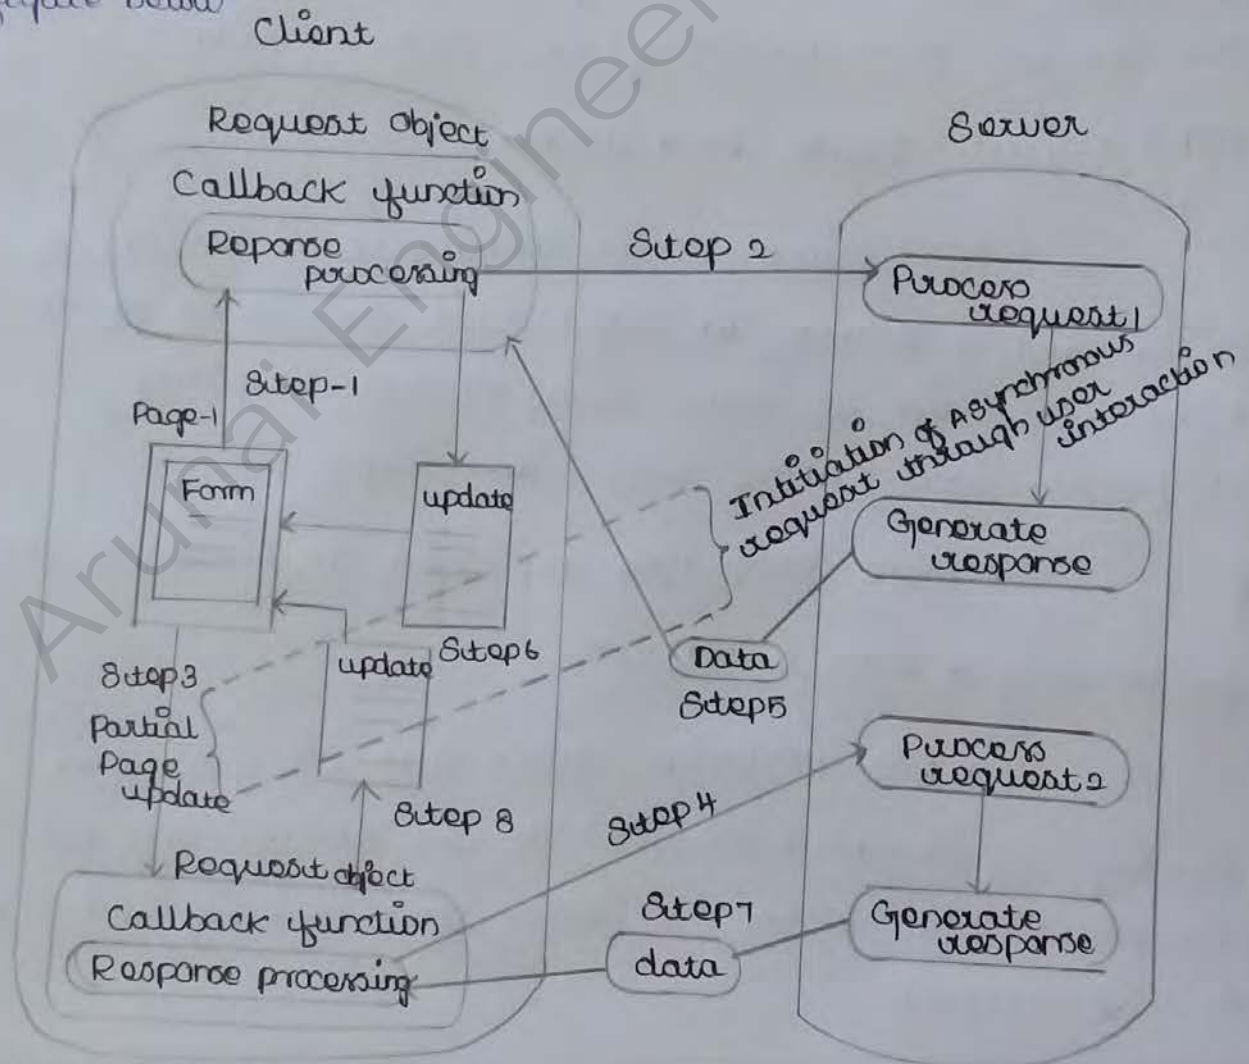 figure below
Client
Request Object
Callback function
Reponse
processing
Step 2
Server
Process
request1
Step-1
Page-1
Form
update
Intitiation of Asynchronous
request through user
interaction
Generate
response
Step6
Data
Step5
Step3
Partial
Page
update
update
Step 8
Step 4
Process
request2
Request object
Callback function
Response processing
Step7
data
Generate
response
Arunai Engineer